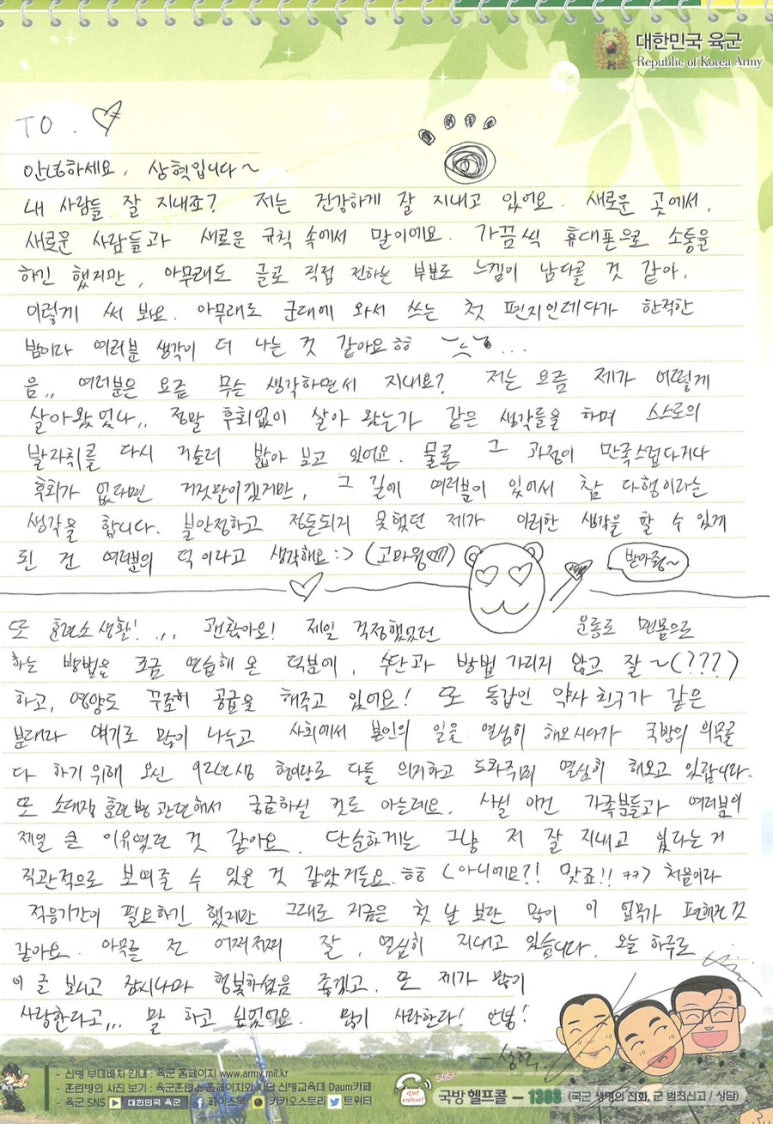 대한민국 육군
Republic of Korea Army
TO. ♡
안녕하세요, 상혁입니다~
내 사람들 잘 지내죠? 저는 건강하게 잘 지내고 있어요. 새로운 곳에서,
새로운 사람들과 새로운 규칙 속에서 말이에요. 가끔씩 휴대폰으로 소통을
하긴 했지만, 아무래도 글로 직접 전하는 부분도 느낌이 남다를 것 같아,
이렇게 써 봐요. 아무래도 군대에 와서 쓰는 첫 편지인데다가 한적한
밤이라 여러분 생각이 더 나는 것 같아요 ㅎㅎ ...
음,, 여러분은 요즘 무슨 생각하면서 지내요? 저는 요즘 제가 어떻게
살아왔었나,, 정말 후회없이 살아 왔는가 같은 생각들을 하며 스스로의
발자취를 다시 거슬러 밟아 보고 있어요. 물론 그 과정이 만족스럽다거나
후회가 없다면 거짓말이겠지만, 그 길에 여러분이 있어서 참 다행이라는
생각을 합니다. 불안정하고 정돈되지 못했던 제가 이러한 생각을 할 수 있게
된 건 여러분의 덕이라고 생각해요 :> (고마웡)
받아줭~
또 훈련소 생활! ... 괜찮아요! 제일 걱정했었던 운동도 맨몸으로
하는 방법을 조금 연습해 온 덕분에, 수단과 방법 가리지 않고 잘~(???)
하고, 영양도 꾸준히 공급을 해주고 있어요! 또 동갑인 약사 친구가 같은
분대라 얘기도 많이 나누고 사회에서 본인의 일을 열심히 해오시다가 국방의 의무를
다 하기 위해 오신 92년생 형아랑도 다들 의지하고 도와주며 열심히 해오고 있답니다.
또 소대장 훈련병 관련해서 궁금하실 것도 아는데요, 사실 이건 가족분들과 여러분이
제일 큰 이유였던 것 같아요. 단순하게는 그냥 저 잘 지내고 있다는 거
직관적으로 보여줄 수 있을 것 같았거든요 ㅎㅎ (아니에요?! 맞죠!! ㅋㅋ) 처음이라
적응기간이 필요하긴 했지만 그래도 지금은 첫 날 보단 많이 이 업무가 편해진 것
같아요. 아무튼 전 어찌저찌 잘, 열심히 지내고 있습니다. 오늘 하루도
이 글 보시고 잠시나마 행복하셨음 좋겠고, 또 제가 많이
사랑한다고,,, 말 하고 싶었어요. 많이 사랑한다! 안뇽!
- 상혁
- 신병 부대배치 안내 : 육군 홈페이지 www.army.mil.kr
- 훈련병의 사진 보기 : 육군훈련소 홈페이지와 사단 신병교육대 Daum카페
- 육군 SNS 대한민국 육군 페이스북 카카오스토리 트위터
국방 헬프콜 - 1303 (국군 생명의 전화, 군 범죄신고 / 상담)